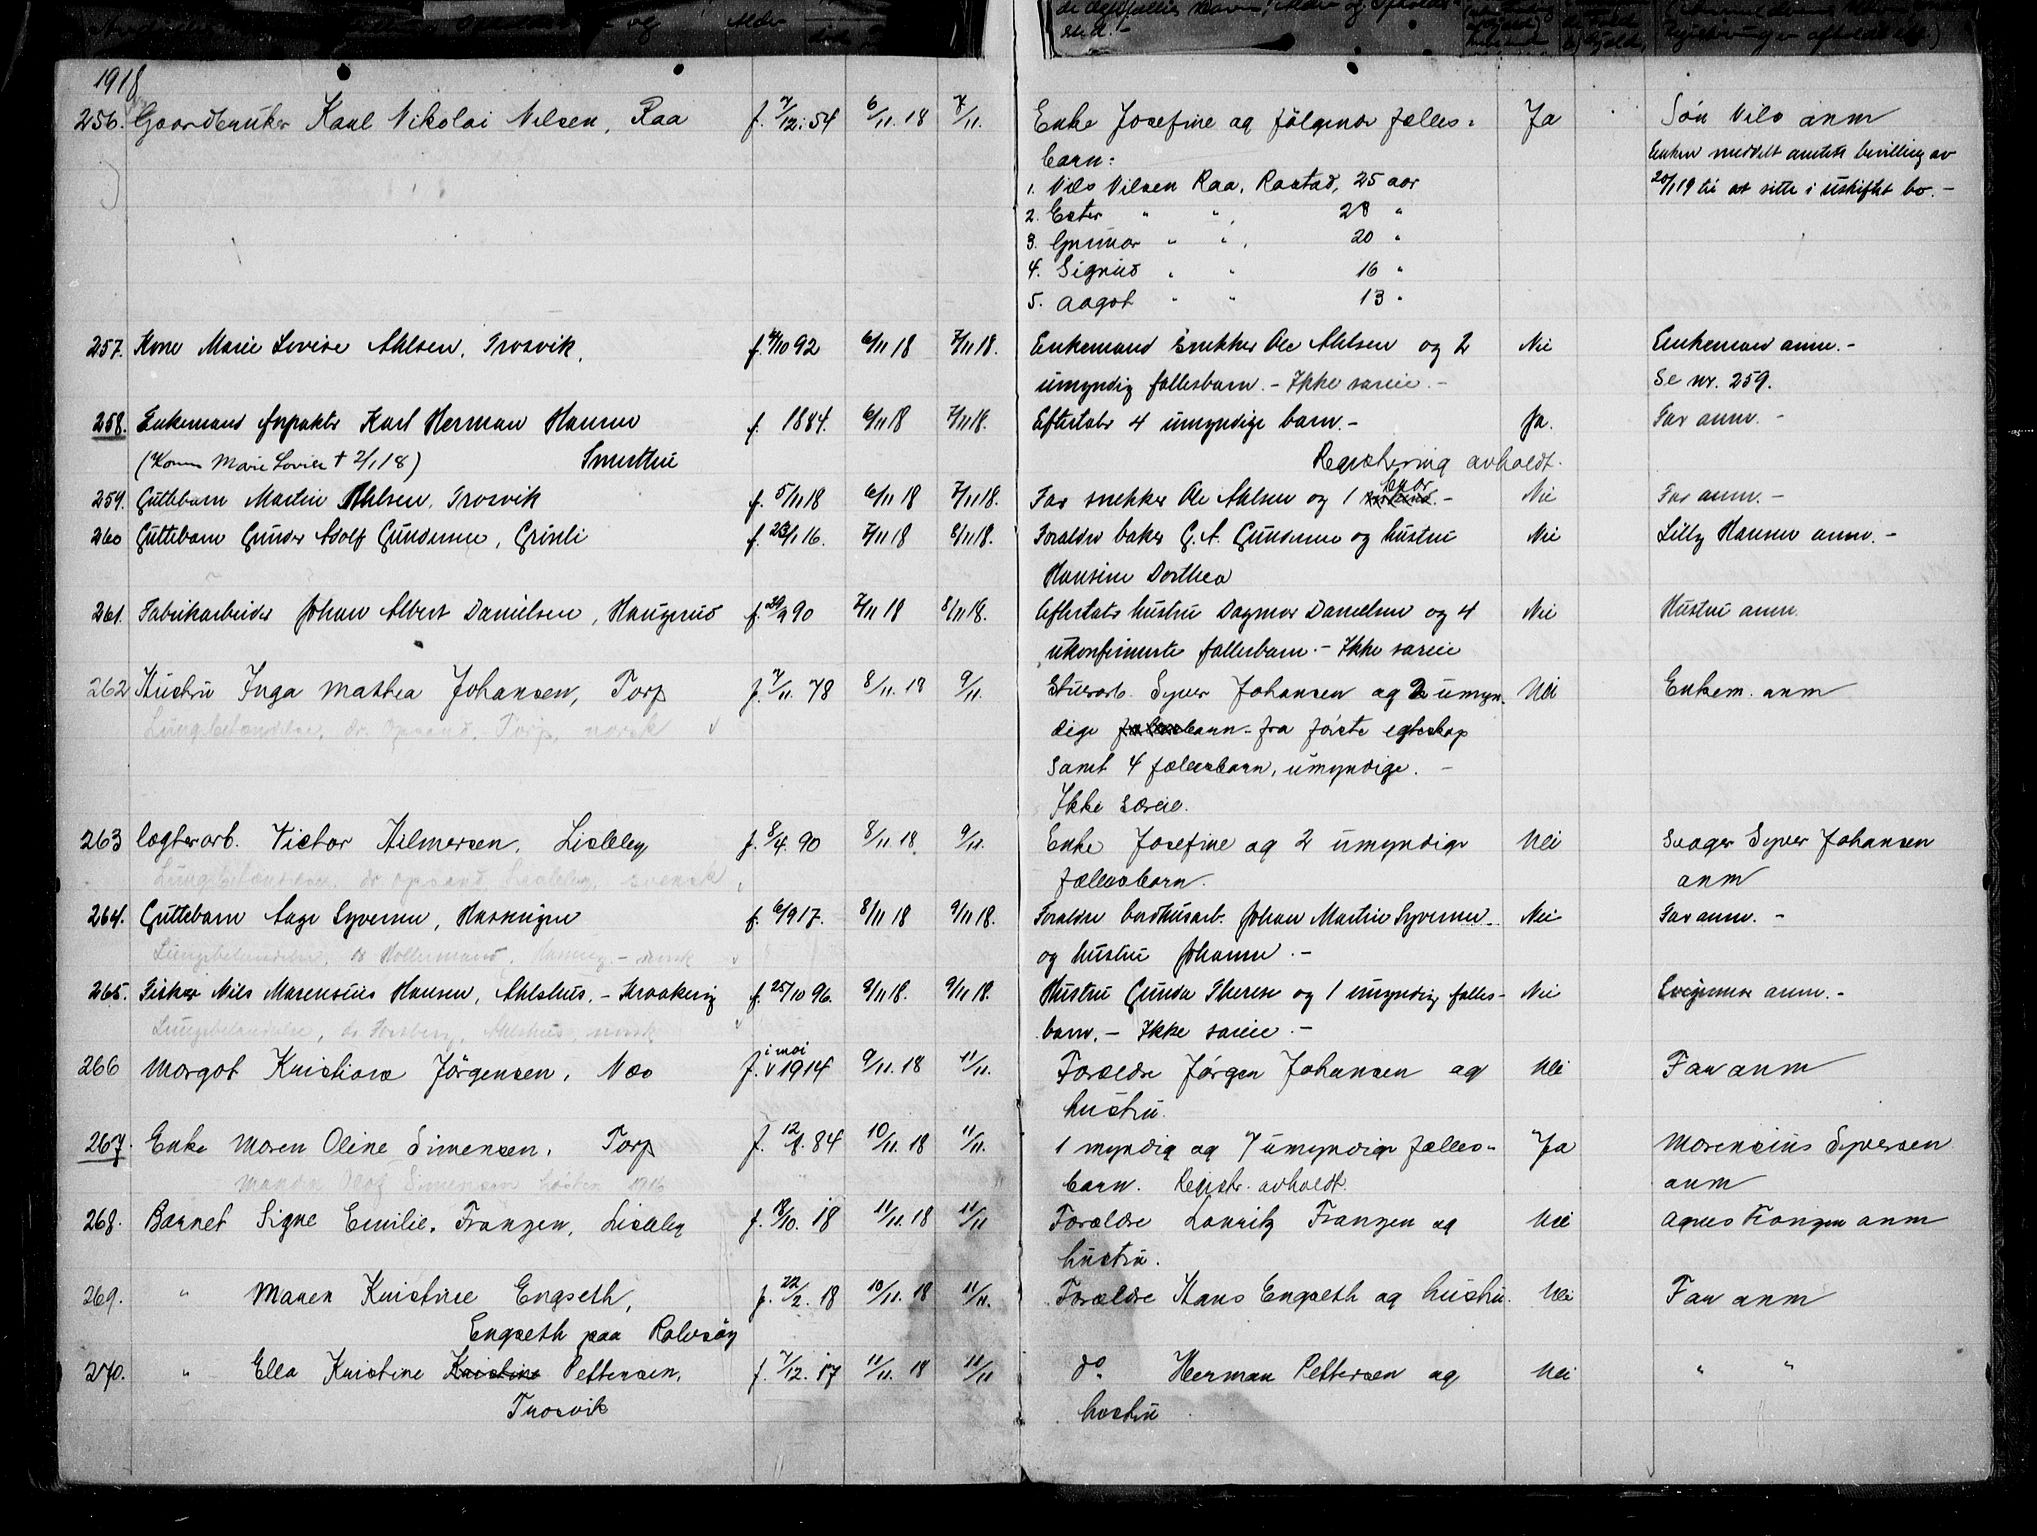 1918
256. Gaardbruker Karl Nikolai Nilsen, Raa f. 7/12. 54 6/11. 18 7/11. Enke Josefine og følgende fælles= Ja Søn Nils anm
barn: Enken meddelt amtets bevilling av
1. Nils Nilsen Raa, Rastad, 25 aar 20/1 19 til at sitte i uskiftet bo. -
2. Ester " " 28 "
3. Gunnar " " 20 "
4. Sigrid " " 16 "
5. Aagot " " 13 "
257. Kone Marie Lovise Ahlsen, Trosvik, 92 6/11 18 7/11 18. Enkemand snekker Ole Ahlsen og 2 Nei Enkemand anm. -
umyndig fællesbarn. - Ikke særeie. - Se nr. 259.
258. Enkemand forpakter Karl Herman Hansen f. 1884. 6/11 18 7/11 18. Efterlater 4 umyndige barn. - Ja. Far anm. -
(Konen Marie Lovise + 2/1 18) Smertu Registrering avholdt.
259. Guttebarn Martin Ahlsen, Trosvik f. 5/11 18 6/11 18 7/11 18. Far snekker Ole Ahlsen og 1 bror - Nei Far anm. -
260 Guttebarn Gunder Adolf Gundersen, Grinli f. 23/1 16. 7/11 18 8/11 18. Forældre baker G. A. Gundersen og hustru Nei Lilly Hansen anm. -
Hansine Dorthea
261. Fabrikarbeider Johan Albert Danielsen, Haugrud f. 29/9 90 7/11 18 8/11 18. Efterlater hustru Dagmar Danielsen og 4 Nei Hustru anm.
ukonfirmerte fællesbarn. - Ikke særeie
262 Hustru Inga Mathea Johansen, Torp f. 7/11. 78 8/11. 18 9/11. Stuerarb. Syver Johansen og 2 umyn- Nei Enkem. anm
Lungebetændelse, dr. Opsand, Torp, norsk dige fællesbarn - fra første egteskap
samt 4 fællesbarn, umyndige. -
Ikke særeie.
263 Løgterarb. Victor Hilmersen, Lisleby f. 8/4. 90 8/11. 18 9/11. Enke Josefine og 2 umyndige Nei Svoger Syver Johansen
Lungebetændelse, dr Opsand, Lisleby, svensk fællesbarn. anm
264. Guttebarn Aage Syversen, f. 6/9 17. 8/11 18 9/11 18. Forældre bordhusarb. Johan Martin Syversen - Nei Far anm. -
Lungebetændelse, dr - norsk og hustru Johanne. -
265. Fisker Nils Marensius Hansen, Ahlshus, - Kraakerøy f. 25/10 96. 8/11 18. 9/11 18. Hustru Gunda Therese og 1 umyndig fælles- Nei anm. -
Lungebetændelse, dr Ahlshus, norsk barn. - Ikke særeie. -
266 Margot Kristiane Jørgensen, Næs f. i mai 1914 9/11. 18 11/11. Forældre Jørgen Johansen og Nei Far anm
hustru.
267. Enke Maren Oline Simensen, Torp f. 12/8. 84 10/11. 18 11/11. 1 myndig og 7 umyndige fælles- Ja Marensius Syversen
Manden Olaf Simensen høsten 1916 barn. Registr. avholdt. anm
268. Barnet Signe Emilie. Franzen, Lisleby f. 18/10. 18 11/11. 18 11/11 Forældre Lauritz Franzen og Nei Agnes Franzen anm
hustru.
269. " Maren Kristine Engseth, f. 22/2. 18 10/11. 18 11/11. Forældre Hans Engseth og hustru. Nei Far anm
Engseth paa Rolvsøy
270. " Ella Kristine Kristine Pettersen, f. 7/12. 17 11/11. 18 11/11 do Herman Pettersen og Nei " "
Trosvik hustru